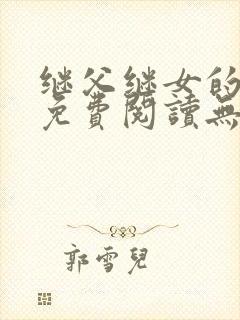 继父继女的
免費閱讀無
郭雪兒